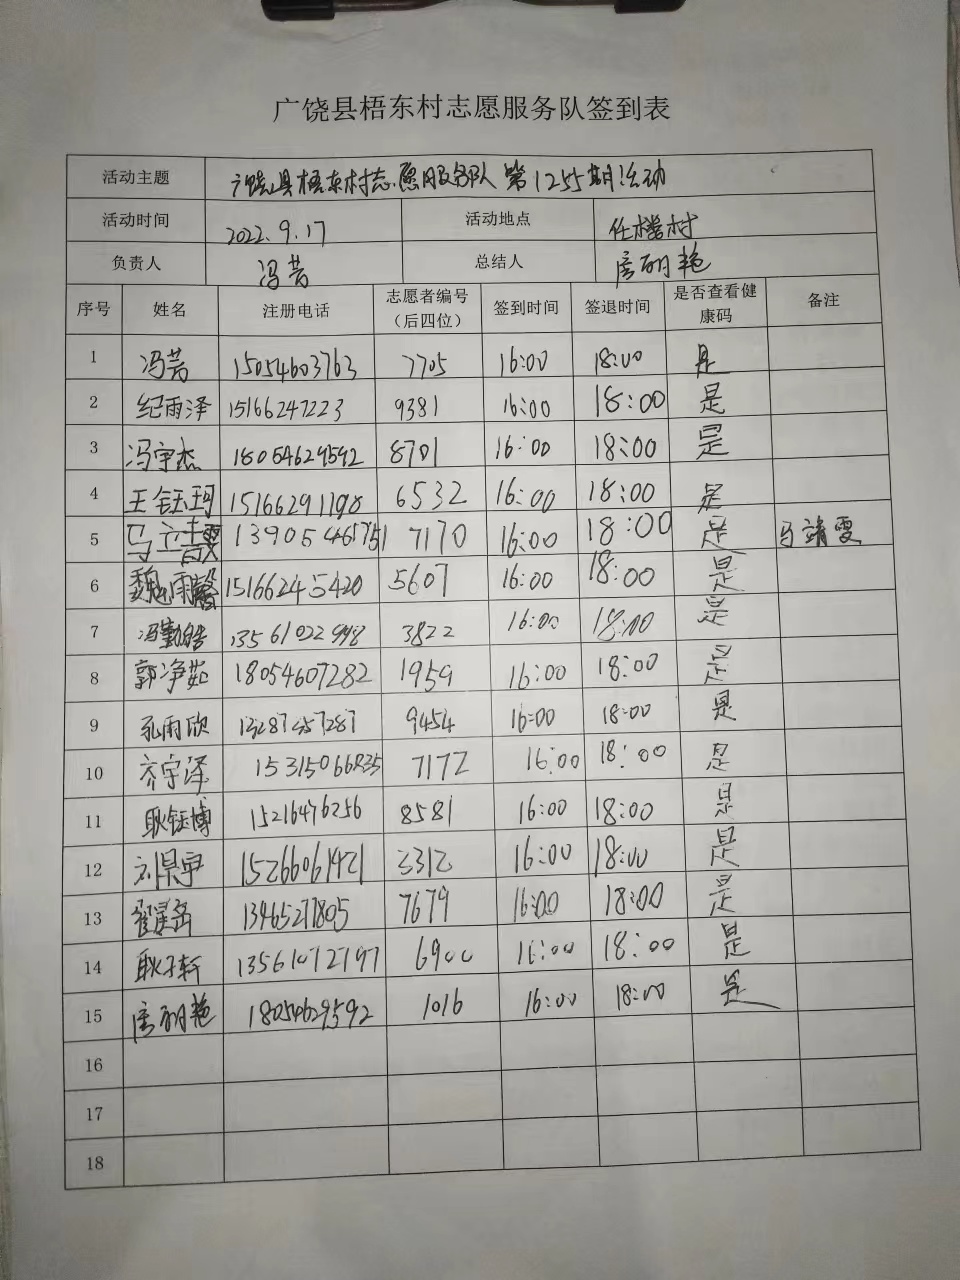 广饶县梧东村志愿服务队签到表
活动主题 广饶县梧东村志愿服务队第1255期活动
活动时间 2022.9.17 活动地点 任楼村
负责人 冯芸 总结人 房丽艳
序号 姓名 注册电话 志愿者编号（后四位） 签到时间 签退时间 是否查看健康码 备注
1 冯芸 15054603763 7705 16:00 18:00 是
2 纪雨泽 15166247223 9381 16:00 18:00 是
3 冯宇杰 18054629592 8701 16:00 18:00 是
4 王钰珂 15166291198 6532 16:00 18:00 是
5 马靖雯 13905461751 7170 16:00 18:00 是 马靖雯
6 魏雨馨 15166245420 5607 16:00 18:00 是
7 13561022998 3822 16:00 18:00 是
8 郭净茹 18054607282 1959 16:00 18:00 是
9 孔雨欣 13287457287 9454 16:00 18:00 是
10 齐宇泽 15315066835 7172 16:00 18:00 是
11 耿钰博 15216476256 8581 16:00 18:00 是
12 刘昊宇 15266061421 3312 16:00 18:00 是
13 13465277805 7679 16:00 18:00 是
14 耿子轩 13561072797 6900 16:00 18:00 是
15 房丽艳 18054629592 1016 16:00 18:00 是
16
17
18